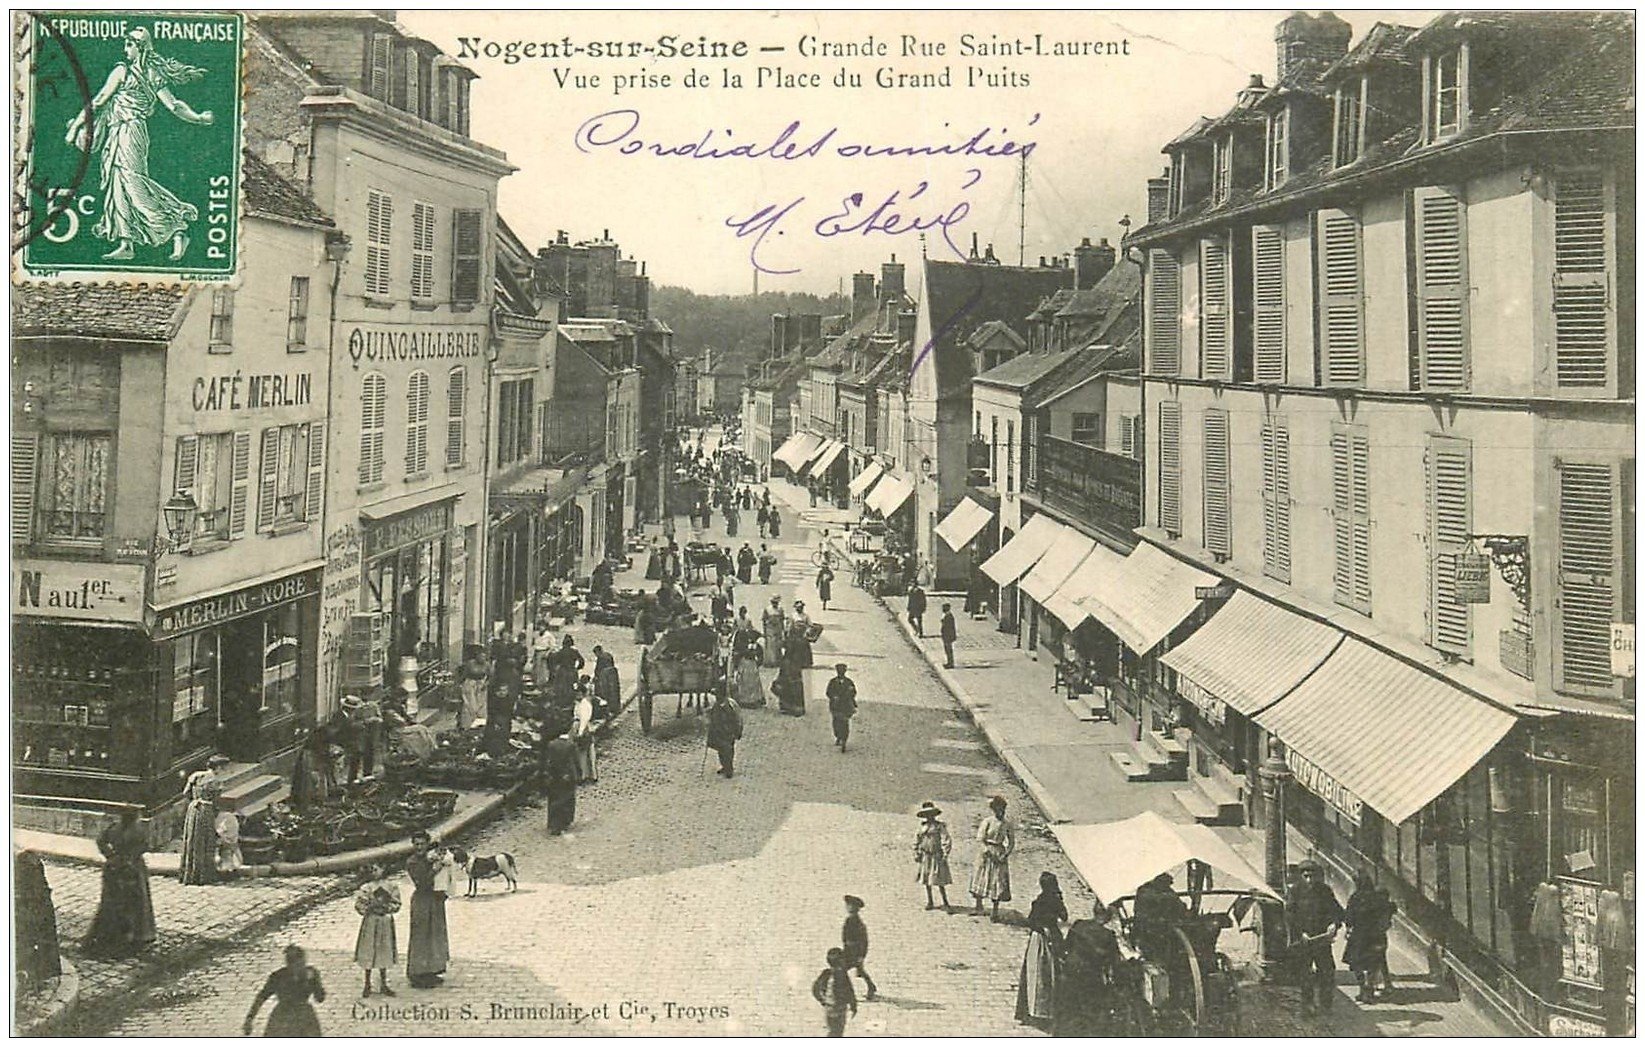 RÉPUBLIQUE FRANÇAISE
5c
POSTES
Nogent-sur-Seine — Grande Rue Saint-Laurent
Vue prise de la Place du Grand Puits
Cordiales amitiés
M. Etévé
QUINCAILLERIE
CAFÉ MERLIN
N au 1.er
MERLIN-NORÉ
AUTOMOBILINE
Collection S. Brunclair et Cie, Troyes